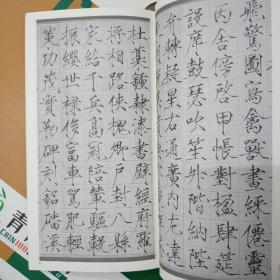 飛驚圖寫禽獸畫綵僊靈
丙舍傍啟甲帳對楹肆筵
設席鼓瑟吹笙升階納陛
弁轉疑星右通廣內左達
杜藁鍾隸漆書壁經府羅
將相路俠槐卿戶封八縣
家給千兵高冠陪輦驅轂
振纓世祿侈富車駕肥輕
策功茂實勒碑刻銘磻溪
青